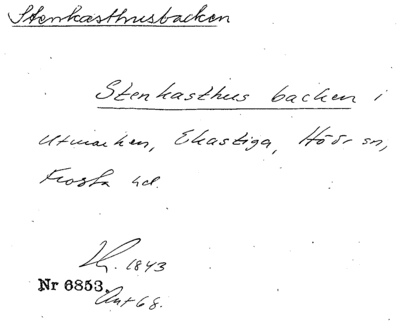 Stenkasthusbacken
Stenkasthus backen i
Utmarken, Ekastiga, Höör sn,
Frosta hd.
1843
Nr 6853.
Ant 68.